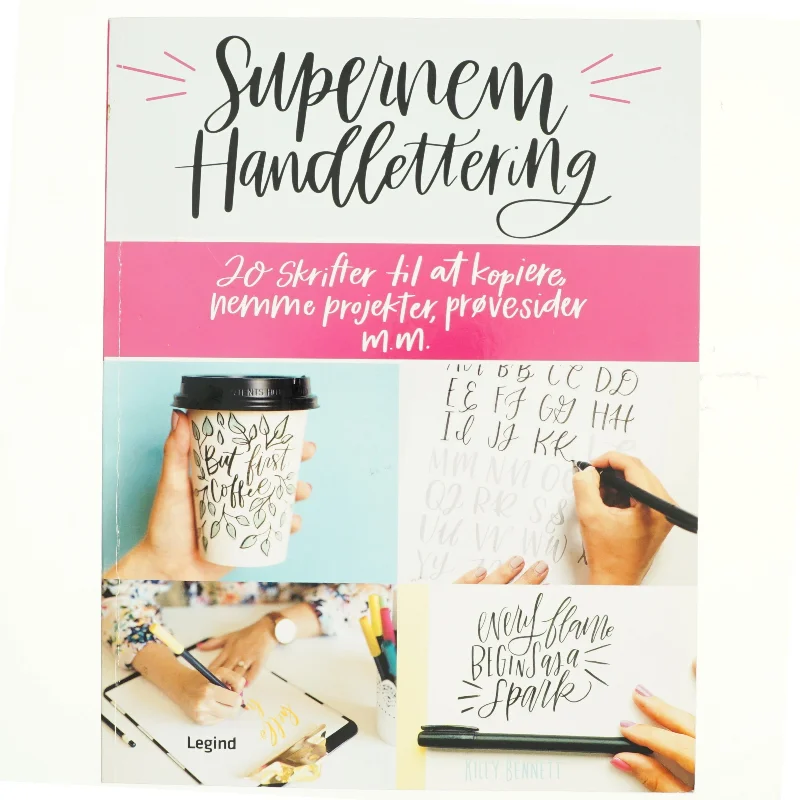 Supernem
Handlettering
20 skrifter til at kopiere,
nemme projekter, prøvesider
m.m.
But first
Coffee
BB CC DD
EE FF GG HH
II JJ KK
MM NN OO
QQ RR SS
UU VV WW
YY
every flame
BEGINS as a
spark
Legind
KILEY BENNETT